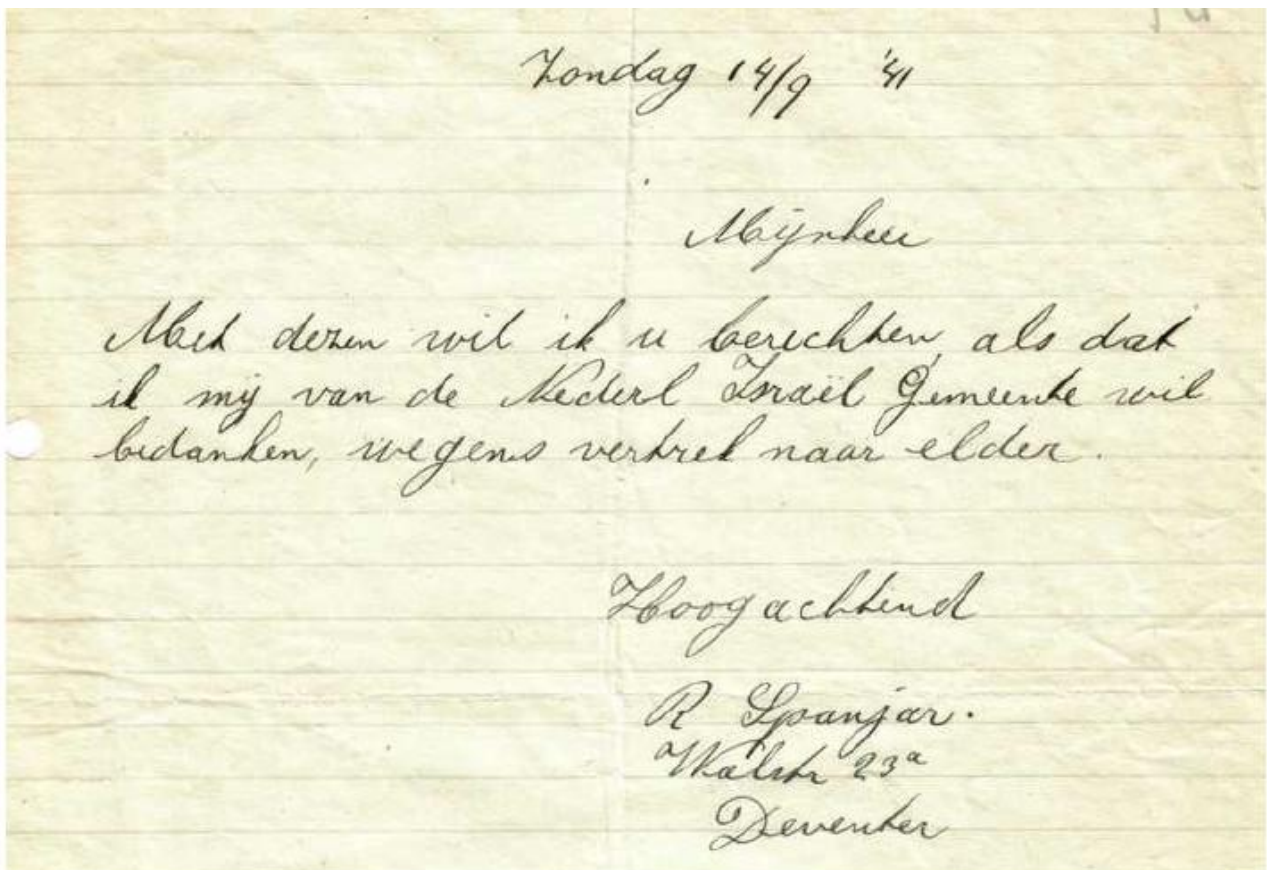 Zondag 14/9 '41
Mijnheer
Met dezen wil ik u berichten, als dat
ik mij van de Nederl Israël Gemeente wil
bedanken, wegens vertrek naar elder.
Hoogachtend
R Spanjar.
Walstr 23a
Deventer